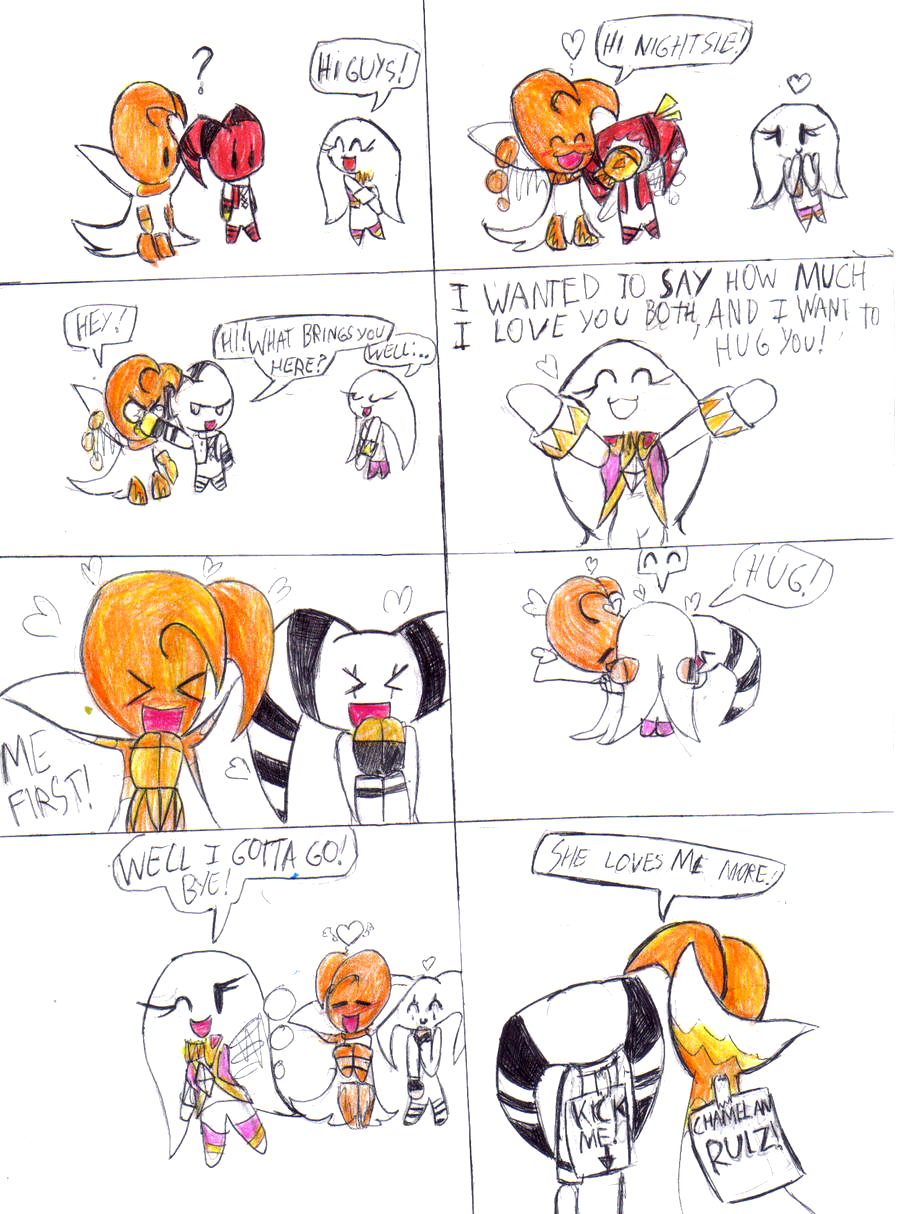 ?
HI GUYS!
HI NIGHTSIE!
HEY!
HI! WHAT BRINGS YOU
HERE?
WELL...
I WANTED TO SAY HOW MUCH
I LOVE YOU BOTH, AND I WANT TO
HUG YOU!
ME
FIRST!
HUG!
WELL I GOTTA GO!
BYE!
SHE LOVES ME MORE!
KICK
ME!
CHAMELAN
RULZ!